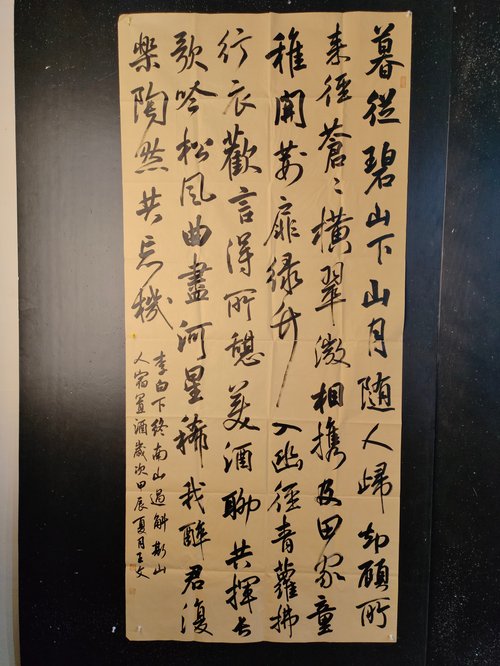 暮從碧山下山月随人歸却顧所
来徑蒼〻横翠微相携及田家童
稚開荆扉绿竹入幽徑青蘿拂
行衣歡言得所憩美酒聊共揮长
歌吟松风曲盡河星稀我醉君復
樂陶然共忘機
李白下終南山過斛斯山
人宿置酒歲次甲辰夏月王文